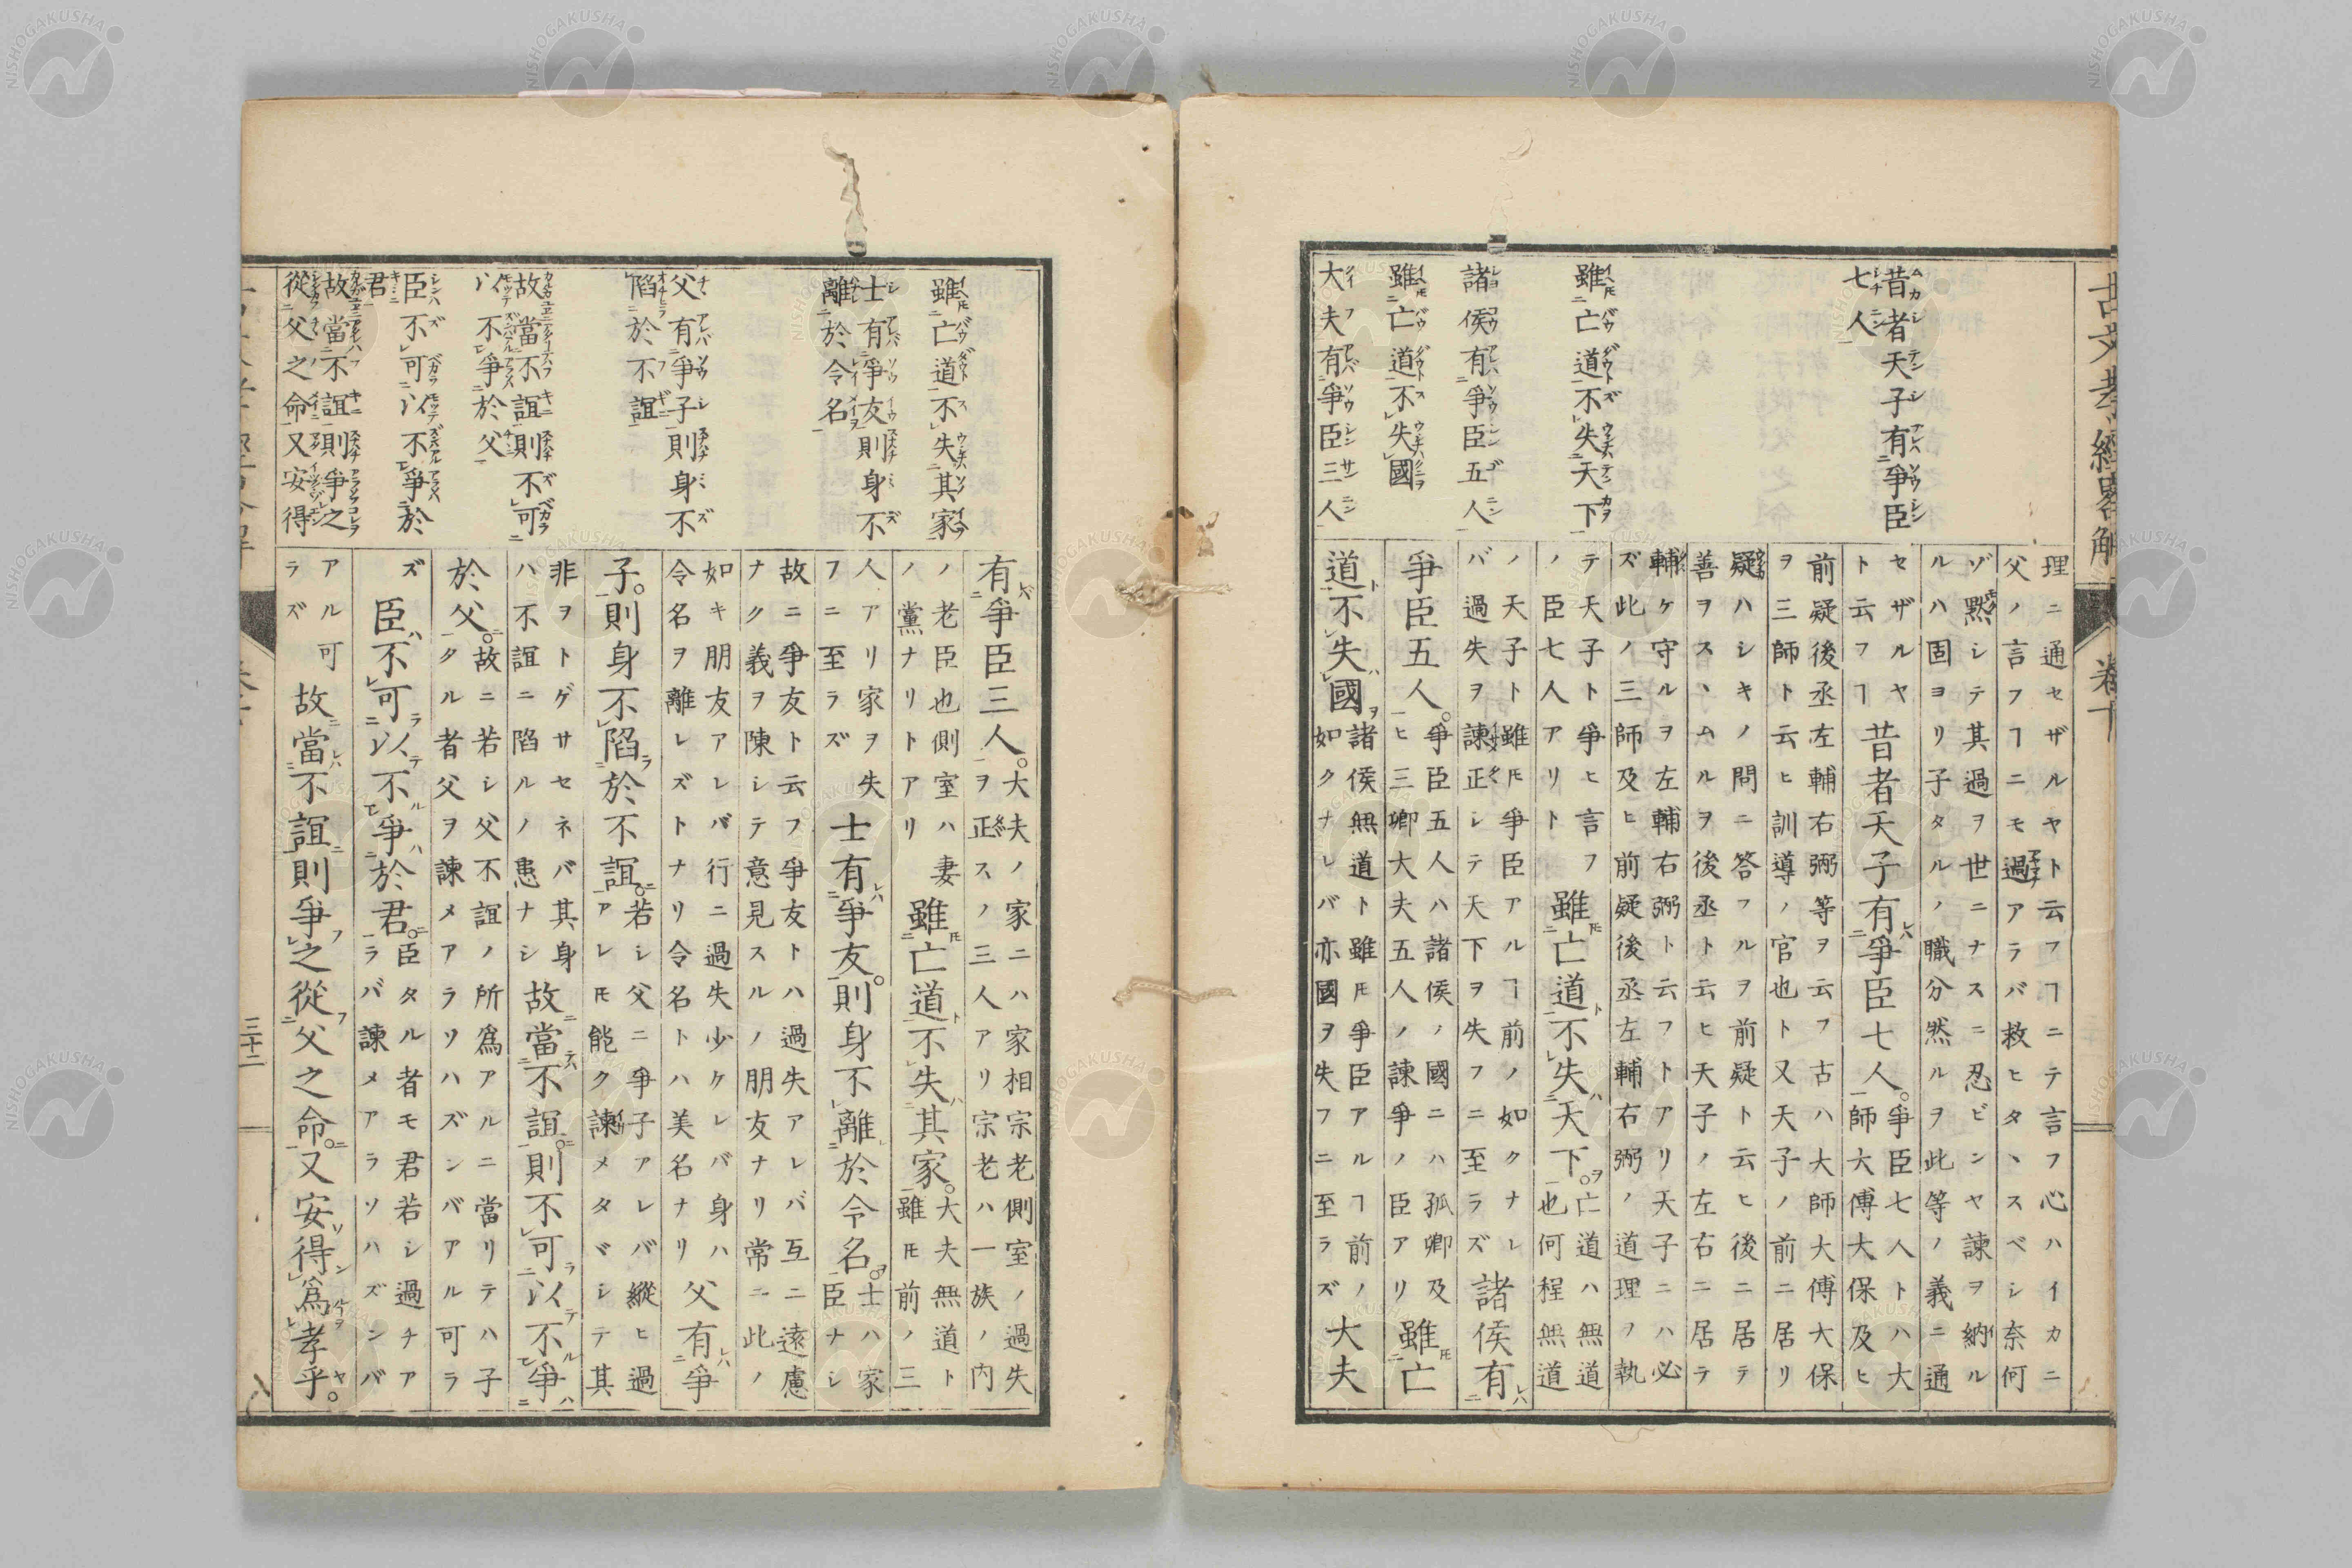 古文孝經畧解
卷下
昔者天子有爭臣
七人
雖亡道不失天下
諸侯有爭臣五人
雖亡道不失國
大夫有爭臣三人
理ニ通セザルヤト云フヿニテ言フ心ハイカニ
父ノ言フヿニモ過アラバ救ヒタヽスベシ奈何
ゾ默シテ其過ヲ世ニナスニ忍ビンヤ諫ヲ納ル
ルハ固ヨリ子タルノ職分然ルヲ此等ノ義ニ通
セザルヤ
ト云フヿ
昔者天子有爭臣七人。
爭臣七人トハ大
師大傅大保及ヒ
前疑後丞左輔右弼等ヲ云フ古ハ大師大傅大保
ヲ三師ト云ヒ訓導ノ官也ト又天子ノ前ニ居リ
疑ハシキノ問ニ答フルヲ前疑ト云ヒ後ニ居テ
善ヲスヽムルヲ後丞ト云ヒ天子ノ左右ニ居テ
輔ケ守ルヲ左輔右弼ト云フトアリ天子ニハ必
ズ此ノ三師及ヒ前疑後丞左輔右弼ノ道理ヲ執
テ天子ト爭ヒ言フ
ノ臣七人アリト
雖亡道不失天下。
亡道ハ無道
也何程無道
ノ天子ト雖𪜈爭臣アルヿ前ノ如クナレ
バ過失ヲ諫正シテ天下ヲ失フニ至ラズ
諸侯有
爭臣五人。
爭臣五人ハ諸侯ノ國ニハ孤卿及
ヒ三卿大夫五人ノ諫爭ノ臣アリ
雖亡
道不失國
諸侯無道ト雖𪜈爭臣アルヿ前ノ
如クナレバ亦國ヲ失フニ至ラズ
大夫
雖亡道不失其家
士有爭友則身不
離於令名
父有爭子則身不
陷於不誼
故當不誼則不可
以不爭於父
臣不可以不爭於
君
故當不誼則爭之
從父之命又安得
有爭臣三人。
大夫ノ家ニハ家相宗老側室ノ過失
ヲ正スノ三人アリ宗老ハ一族ノ内
ノ老臣也側室ハ妻
ノ黨ナリトアリ
雖亡道不失其家。
大夫無道ト
雖𪜈前ノ三
人アリ家ヲ失
フニ至ラズ
士有爭友。則身不離於令名。
士ハ家
臣ナシ
故ニ爭友ト云フ爭友トハ過失アレバ互ニ遠慮
ナク義ヲ陳シテ意見スルノ朋友ナリ常ニ此ノ
如キ朋友アレバ行ニ過失少ケレバ身ハ
令名ヲ離レズトナリ令名トハ美名ナリ
父有爭
子。則身不陷於不誼。
若シ父ニ爭子アレバ縱ヒ過
アレ𪜈能ク諫メタヾシテ其
非ヲトゲサセネバ其身
ハ不誼ニ陷ルノ患ナシ
故當不誼。則不可以不爭
於父。
故ニ若シ父不誼ノ所爲アルニ當リテハ子
クル者父ヲ諫メアラソハズンバアル可ラ
ズ
臣不可以不爭於君。
臣タル者モ君若シ過チア
ラバ諫メアラソハズンバ
アル可
ラズ
故當不誼則爭之從父之命。又安得爲孝乎。
三十二